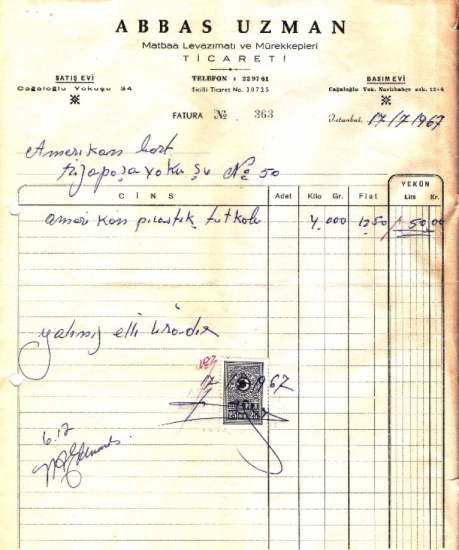 ABBAS UZMAN
Matbaa Levazımatı ve Mürekkepleri
TİCARETİ
SATIŞ EVİ
Cağaloğlu Yokuşu 34
TELEFON : 22 97 61
Sicilli Ticaret No. 30725
BASIM EVİ
Cağaloğlu Yok. Narlıbahçe sok. 12-6
FATURA № 363
İstanbul: 17/7/1967
Amerikan bort
No 50
CİNS Adet Kilo Gr. Fiat YEKÛN
Lira Kr.
amerikan tutkalı 4.000 12.50 50.00
yalnız elli liradır
17 1967
6.12